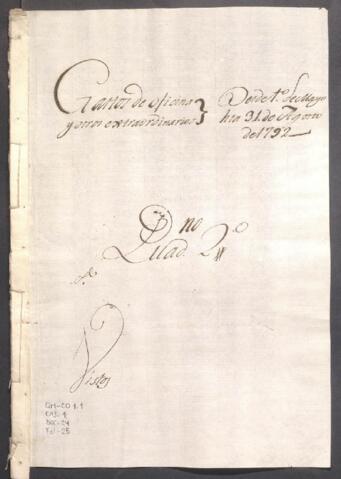 Gastos de oficina
y otros extraordinarios
Desde 1.º de Mayo
hta 31. de Agosto
de 1792
Quad.no 2.º
Vistos
GM-CO 1.1
CAJ. 1
DOC. 24
Fol. 25